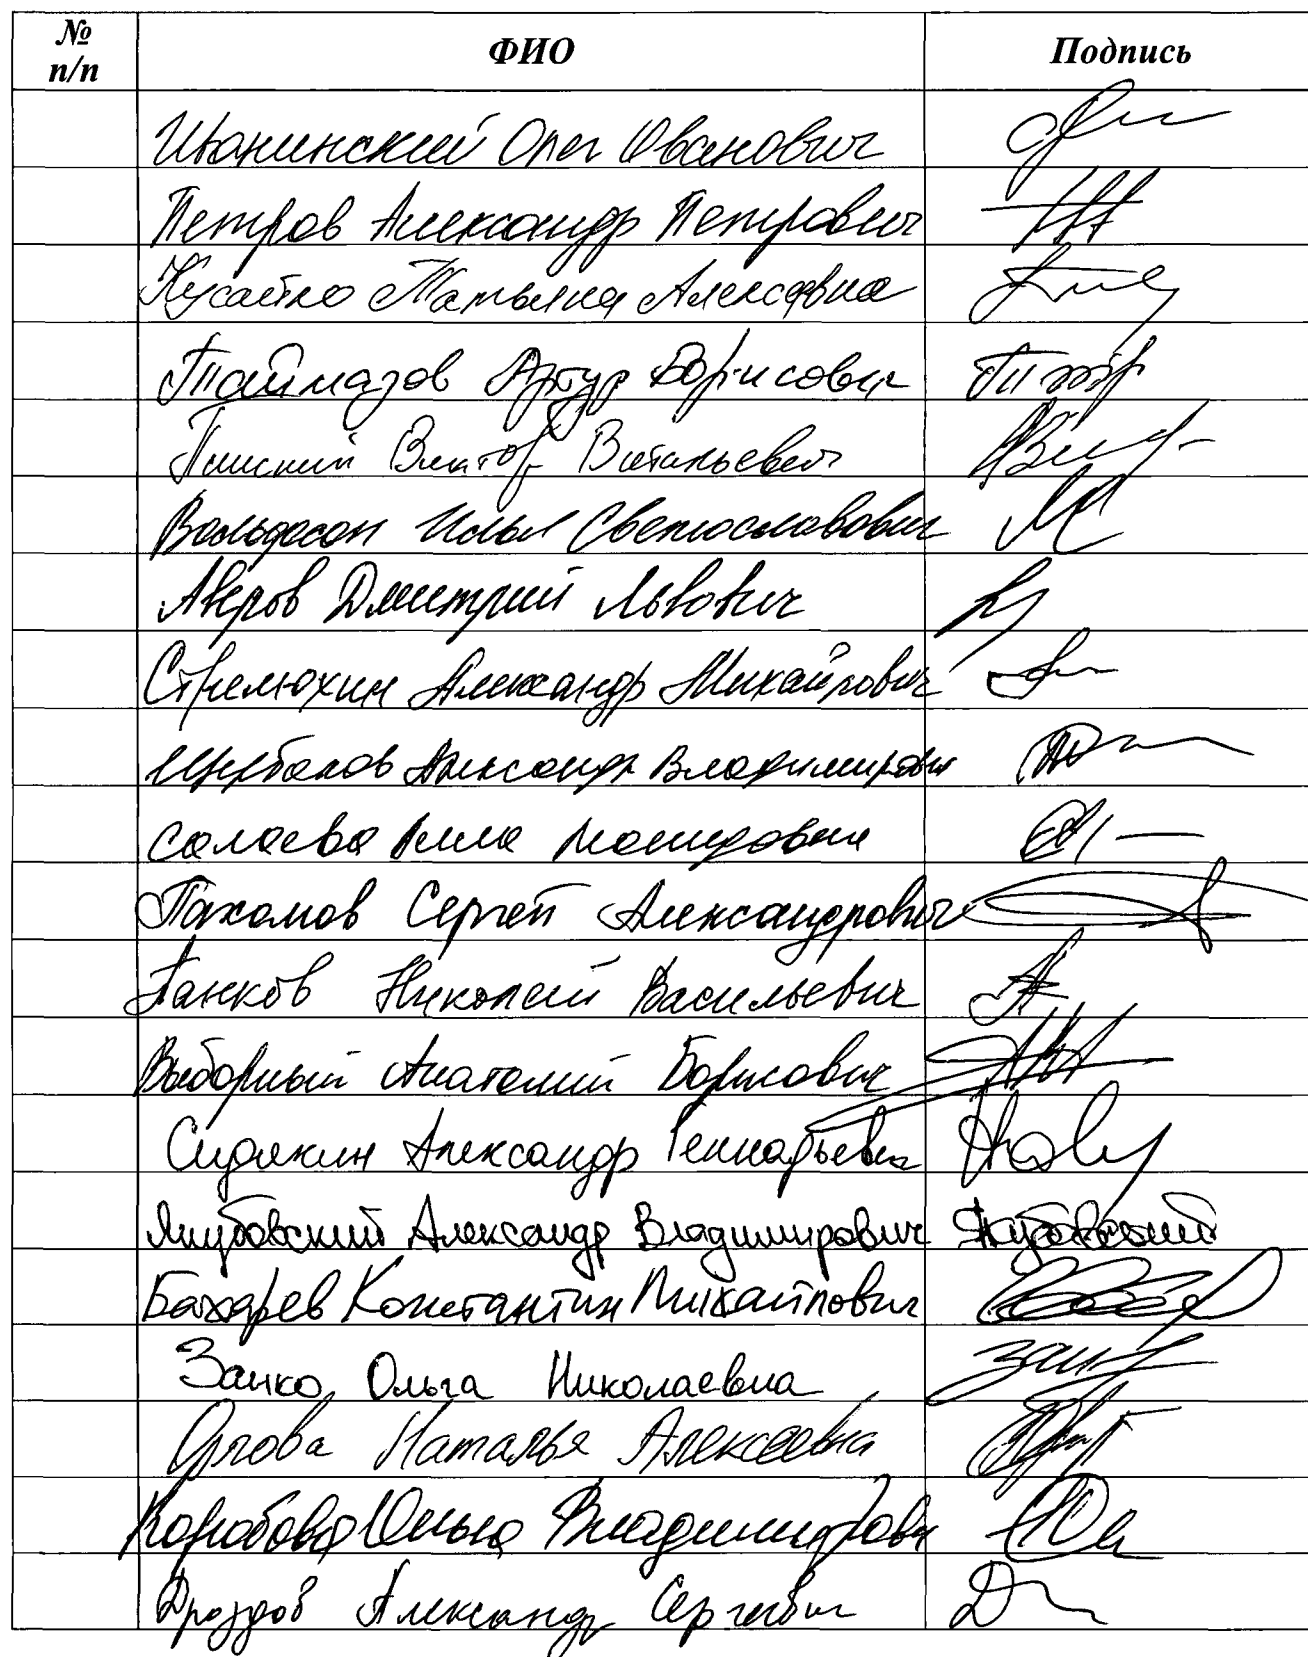 № п/п ФИО Подпись
Олег Иванович
Петров Александр Петрович
Кусайко Татьяна Алексеевна
Таймазов Артур Борисович
Пинский Виктор Витальевич
Вольфсон Илья Светославович
Аверов Дмитрий Львович
Стрелюхин Александр Михайлович
Щербаков Александр Владимирович
Салаева Алла Леонидовна
Пахомов Сергей Александрович
Панков Николай Васильевич
Выборный Анатолий Борисович
Сидякин Александр Геннадьевич
Якубовский Александр Владимирович Якубовский
Бахарев Константин Михайлович
Занко Ольга Николаевна
Орлова Наталья Алексеевна
Коробова Ольга Владимировна
Дроздов Александр Сергеевич